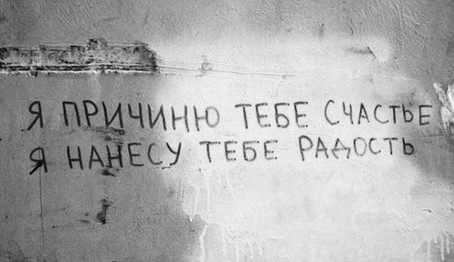 Я ПРИЧИНЮ ТЕБЕ СЧАСТЬЕ
Я НАНЕСУ ТЕБЕ РАДОСТЬ